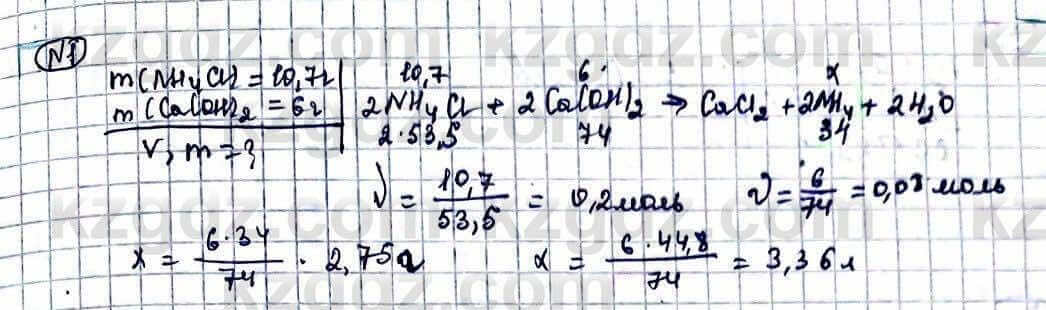 №1
m(NH₄Cl) = 10,7г
m(Ca(OH)₂ = 6г
V, m = ?
10,7 6 x
2NH₄Cl + 2Ca(OH)₂ → CaCl₂ + 2NH₄ + 2H₂O
2·53,5 74 34
ν = 10,7/53,5 = 0,2 моль ν = 6/74 = 0,08 моль
x = 6·34/74 · 2,75г x = 6·44,8/74 = 3,36л
kzgdz.com